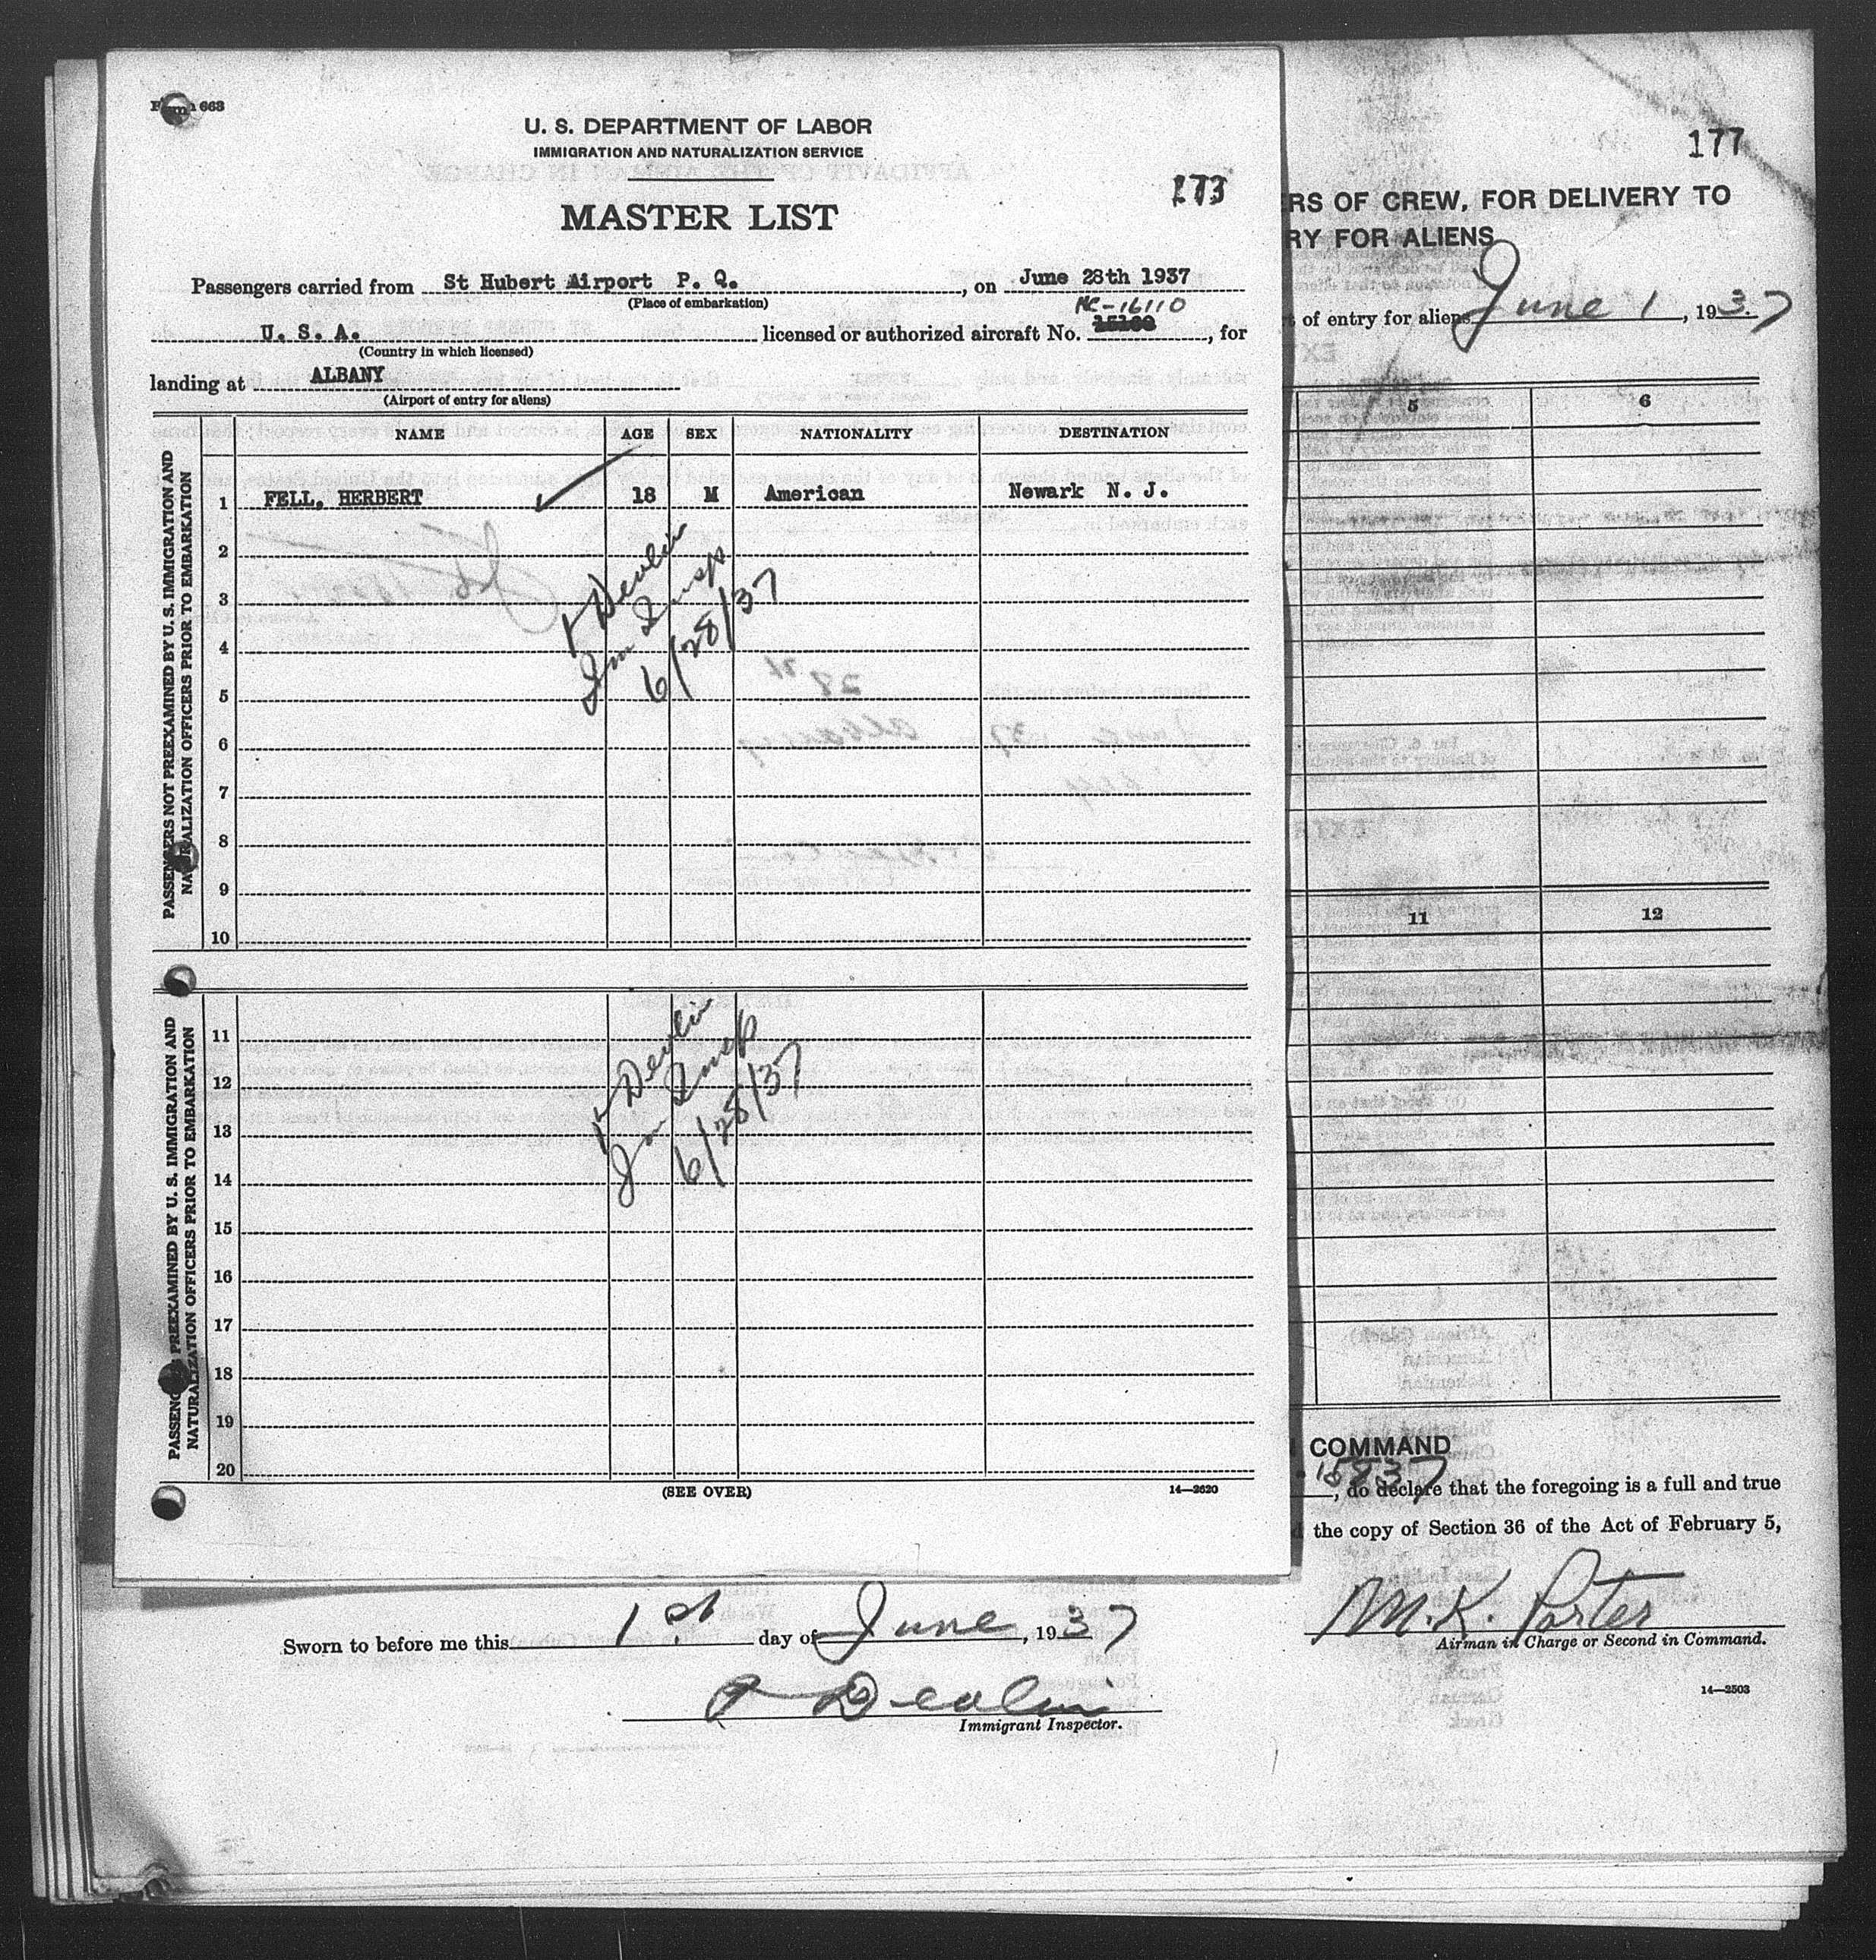 Form 663
U. S. DEPARTMENT OF LABOR
IMMIGRATION AND NATURALIZATION SERVICE
173
MASTER LIST
Passengers carried from St Hubert Airport P. Q., on June 28th 1937
(Place of embarkation)
NC-16110
U. S. A. licensed or authorized aircraft No. , for
(Country in which licensed)
landing at ALBANY
(Airport of entry for aliens)
NAME AGE SEX NATIONALITY DESTINATION
PASSENGERS NOT PREEXAMINED BY U. S. IMMIGRATION AND
NATURALIZATION OFFICERS PRIOR TO EMBARKATION
1 FELL, HERBERT 18 M American Newark N. J.
2
3
4
5
6
7
8
9
10
Devlin
Im Insp
6/28/37
PASSENGERS PREEXAMINED BY U. S. IMMIGRATION AND
NATURALIZATION OFFICERS PRIOR TO EMBARKATION
11
12
13
14
15
16
17
18
19
20
Devlin
Im Insp
6/28/37
(SEE OVER)
14—2620
177
RS OF CREW, FOR DELIVERY TO
RY FOR ALIENS
of entry for aliens June 1, 1937
5 6
11 12
COMMAND
, do declare that the foregoing is a full and true
the copy of Section 36 of the Act of February 5,
M. K. Porter
Airman in Charge or Second in Command.
Sworn to before me this 1st day of June, 1937
Devlin
Immigrant Inspector.
14—2503